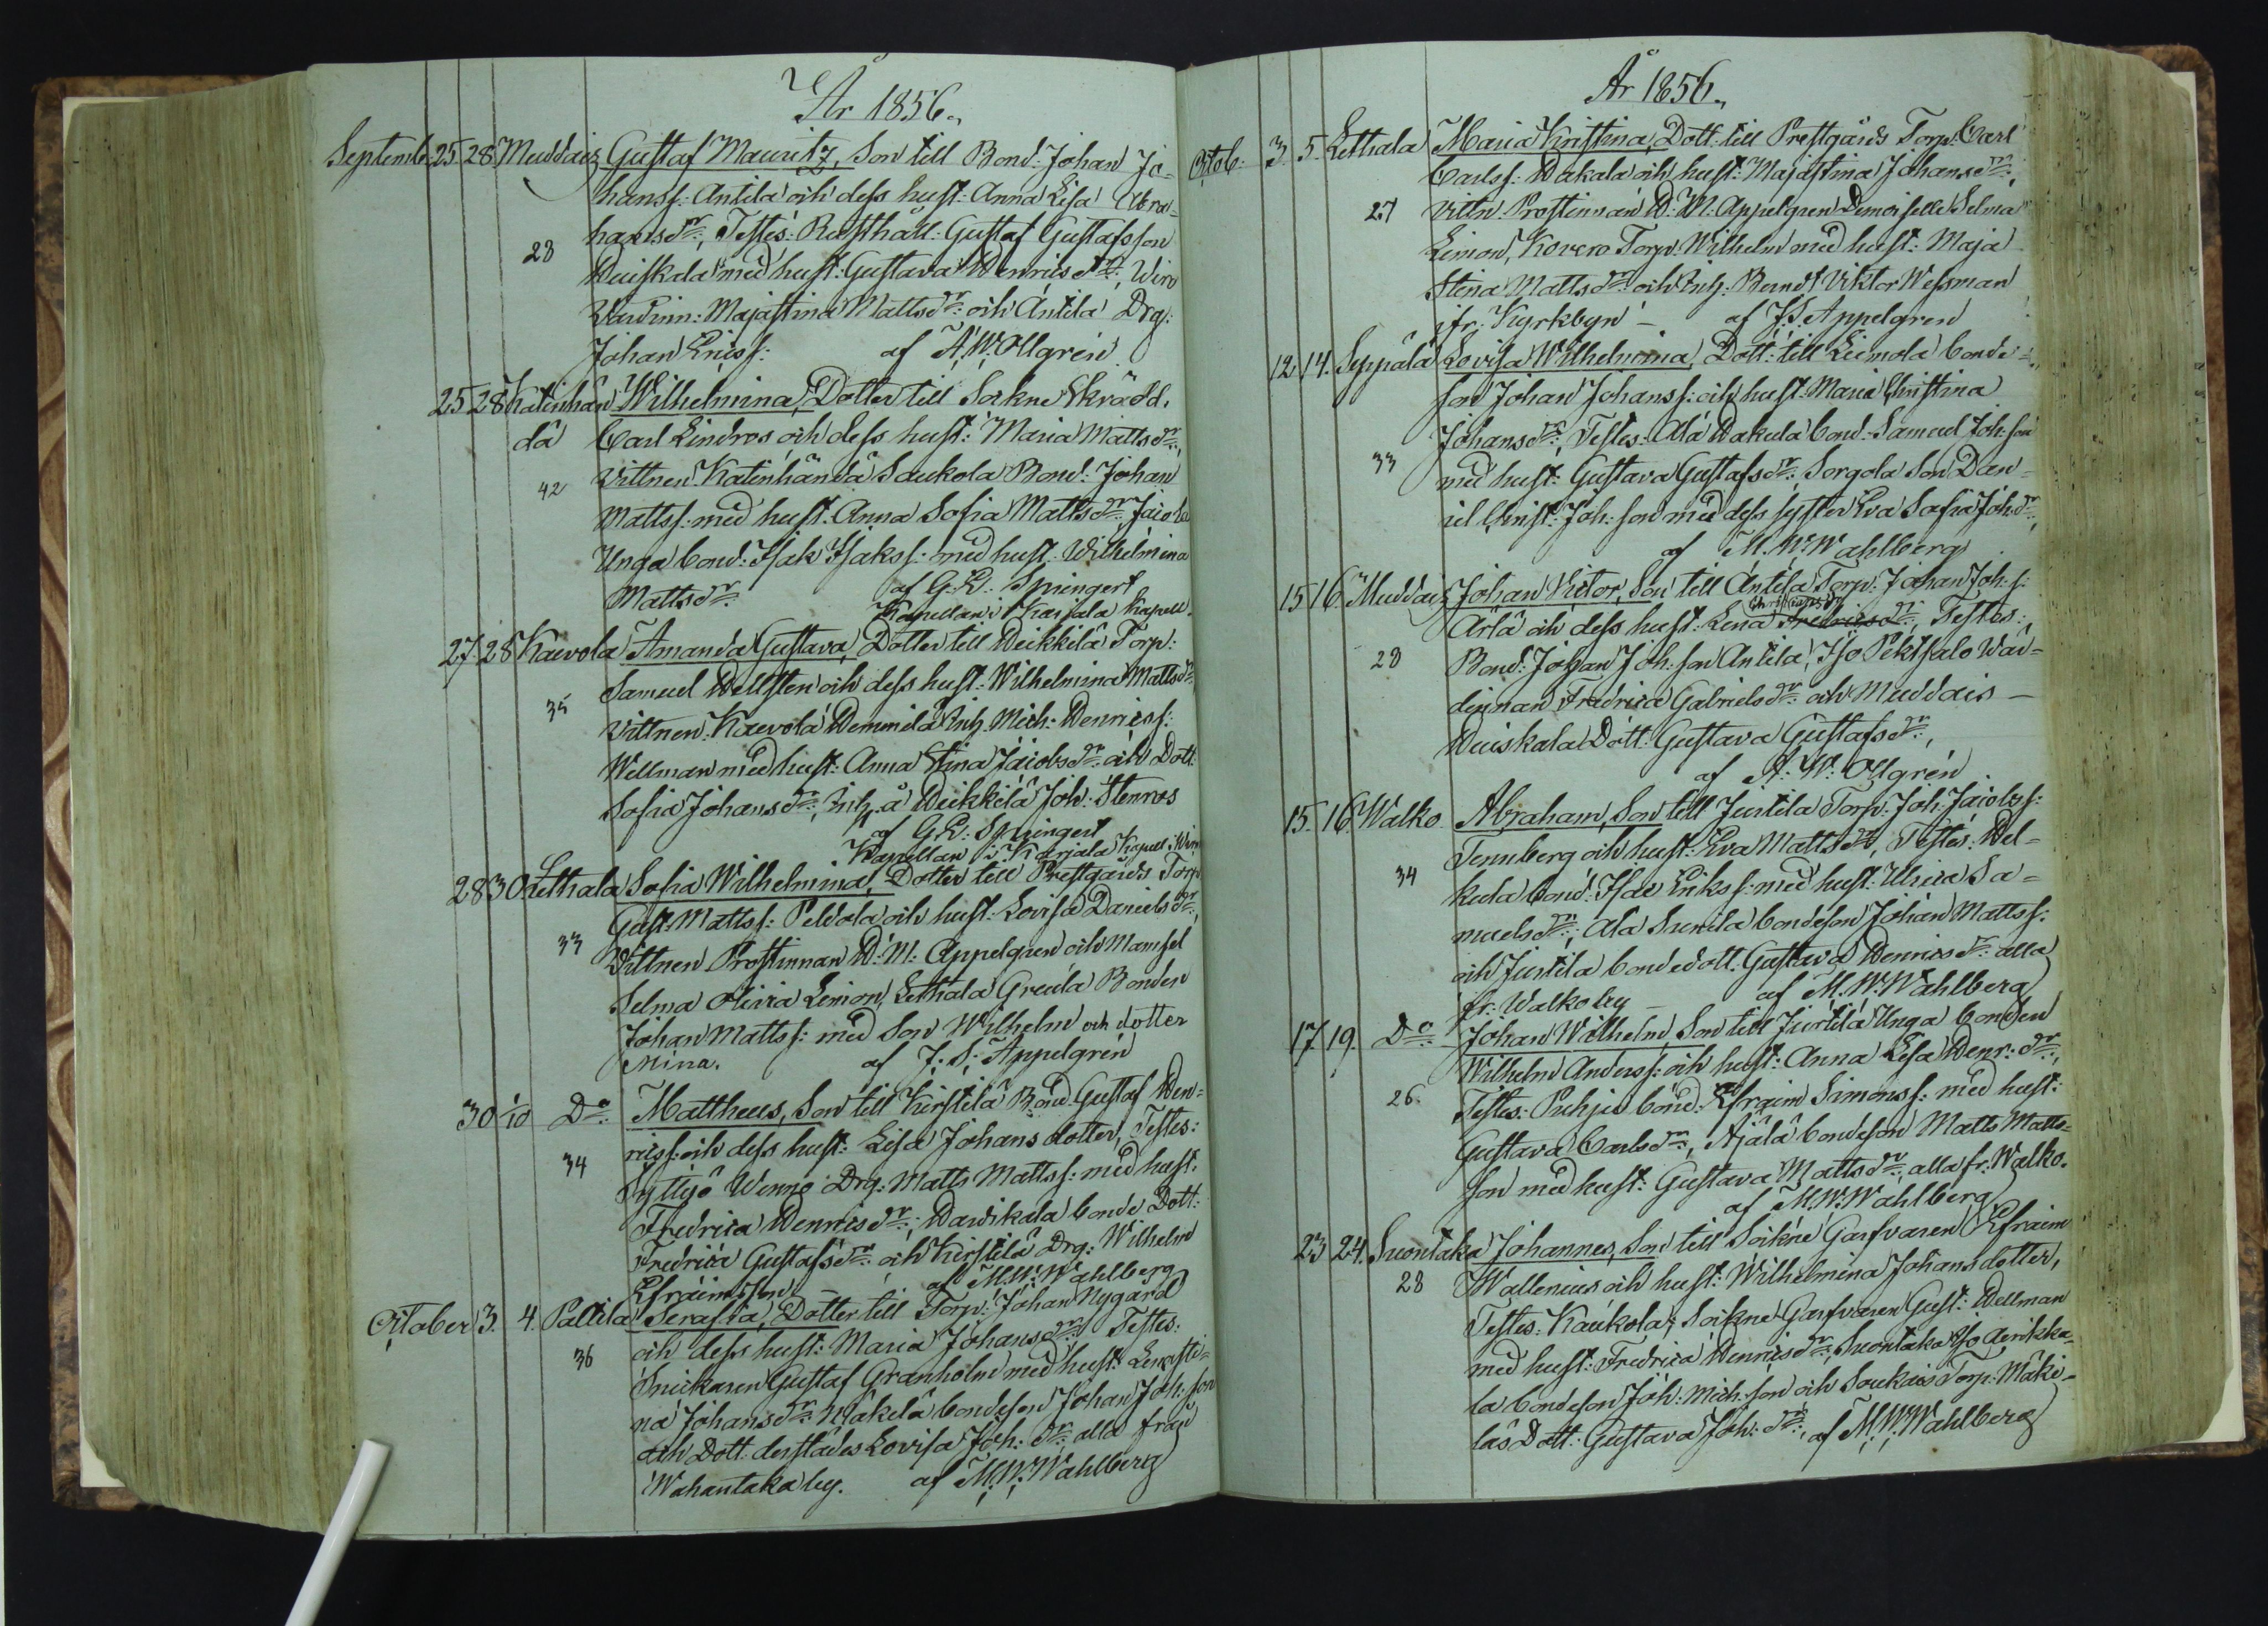 År 1856.
Septemb. 25 28 Muddais Gustaf Mauritz, Son till Bond: Johan Jo-
hanss: Antila och dess hust: Anna Lisa Abra-
28 hamsdr:, Testes: Rusthåll: Gustaf Gustafsson
Huiskala med hust: Gustava Henricsdr:, Wiro
Wärdinn: Majastina Mattsdr: och Antila Drg:
Johan Ericss: af A. W. Ollgrén
25 28 Katinhän Wilhelmina, Dotter till Sokne Skrädd.
dä Carl Lindros och dess hust: Maria Mattsdr:,
42 Vittnen Katinhändä Saukola Bond: Johan
Mattss: med hust: Anna Sofia Mattsdr:
Unga bond: Isak Isakss: med hust: Wilhelmina
Mattsdr: af G. E. Springert
Kapellan i Karjala Kapell.
27. 28 Kaevola Amanda Gustava, Dotter till Heikkilä Torp:
Samuel Hellsten och dess hust: Wilhelmina Mattsdr:
35 Vittnen: Kaevola Hemmilä Inh. Mich: Henricss:
Wellman med hust: Anna Stina Jacobsdr: och Dott:
Sofia Johansdr:, Inh. å Heikkilä Joh: Stenros
af G. E. Springert
Kapellan i Karjala Kapell
28 30 Lethala Sofia Wilhelmina, Dotter till Prestgårds Torp
Gust: Mattss: Peldola och hust: Lovisa Danielsdr:,
33 Vittnen Prostinnan H: M: Appelgren och Mamsel
Selma Olivia Limon, Lethala Greula Bonden
Johan Mattss: med Son Wilhelm och dotter
Mina. af J. S. Appelgrén
30 1/10 Do: Mattheus, Son till Kirstilä Bond. Gustaf Hen-
ricss: och dess hust: Lisa Johans dotter, Testes:
34 Wenno Drg: Matts Mattss: med hust:
Fredrica Henricsdr:, Haudikala bonde Dott:
Fredrica Gustafsdr: och Kirstilä Drg: Wilhelm
Efraimsson af M. W. Wahlberg
October 3. 4. Paltila Serafia, Dotter till Torp: Johan Nygård
36 och dess hust: Maria Johansdr: Testes:
Snickaren Gustaf Granholm med hust:
na Johansdr: Mäkelä bondeson Johan Joh: son
och Dott. derstädes Lovisa Joh: dr: alla från
Wahantaka by. af M. W. Wahlberg
År 1856.
Octob: 3. 5. Lethala Maria Kristina, Dott: till Prestgårds Torp: Carl
Carlss: Hakala och hust: Majastina Johansdr:,
27 Vittn. Prostinnan H: M: Appelgren Demoiselle Selma
Limon, Kovero Torp. Wilhelm med hust: Maja
Stina Mattsdr: och Inh: Berndt Viktor Wessman
ifr: Kyrkbyn – af J. S. Appelgren
12 14. Seppälä Lovisa Wilhelmina, Dott: till Leimola bonde-
son Johan Johanss: och hust: Maria Christina
Johansdr:, Testes: Ala Hakula bond: Samuel Joh: son
33 med hust: Gustava Gustafsdr: Sorgola Son Dan-
iel Christ: Joh: son med dess syster Eva Sofia Joh: dr:,
af M. W. Wahlberg
15 16. Muddais Johan Victor, Son till Antila Torp: Johan Joh: s:
Ärlä och dess hust: Lena Fredricsdr:, Testes:
28 Bond: Johan Joh: son Antila, Iso Pektsalo Wär-
dinnan Fredrica Gabrielsdr: och Muddais –
Huiskala Dott: Gustava Gustafsdr:,
af A. W. Ollgrén
15. 16 Walko Abraham, Son till Jurtila Torp: Joh: Jacobss:
Tennberg och hust: Eva Mattsdr:, Testes: Hel-
34 kula bond: Isac Erikss: med hust: Ulrica Sa-
muelsdr:, Ala Sunila bondeson Johan Mattss:
och Jurtila bondedott. Gustava Henricsdr: alla
fr: Walko by – af M. W. Wahlberg
17 19. Do: Johan Wilhelm, Son till Jurtila Unga bonden
Wilhelm Anderss: och hust: Anna Lisa Henr: dr:,
26. Testes: Puhju bond: Efraim Simonss: med hust:
Gustava Carlsdr:, Äjälä bondeson Matts Matts-
son med hust: Gustava Mattsdr: alla fr: Walko.
af M. W. Wahlberg
23 24. Suontaka Johannes, Son till Sockne Garfvaren Efraim
28 Wallenius och hust: Wilhelmina Johansdotter,
Testes: Kaukola Sockne Garfvaren Gust: Hellman
med hust: Fredrica Henricsdr:, Suontaka Iso Aerikka-
la bondeson Joh: Mich: son och Soukais Torp. Mäke-
läs Dott: Gustava Joh: dr:, af M. W. Wahlberg